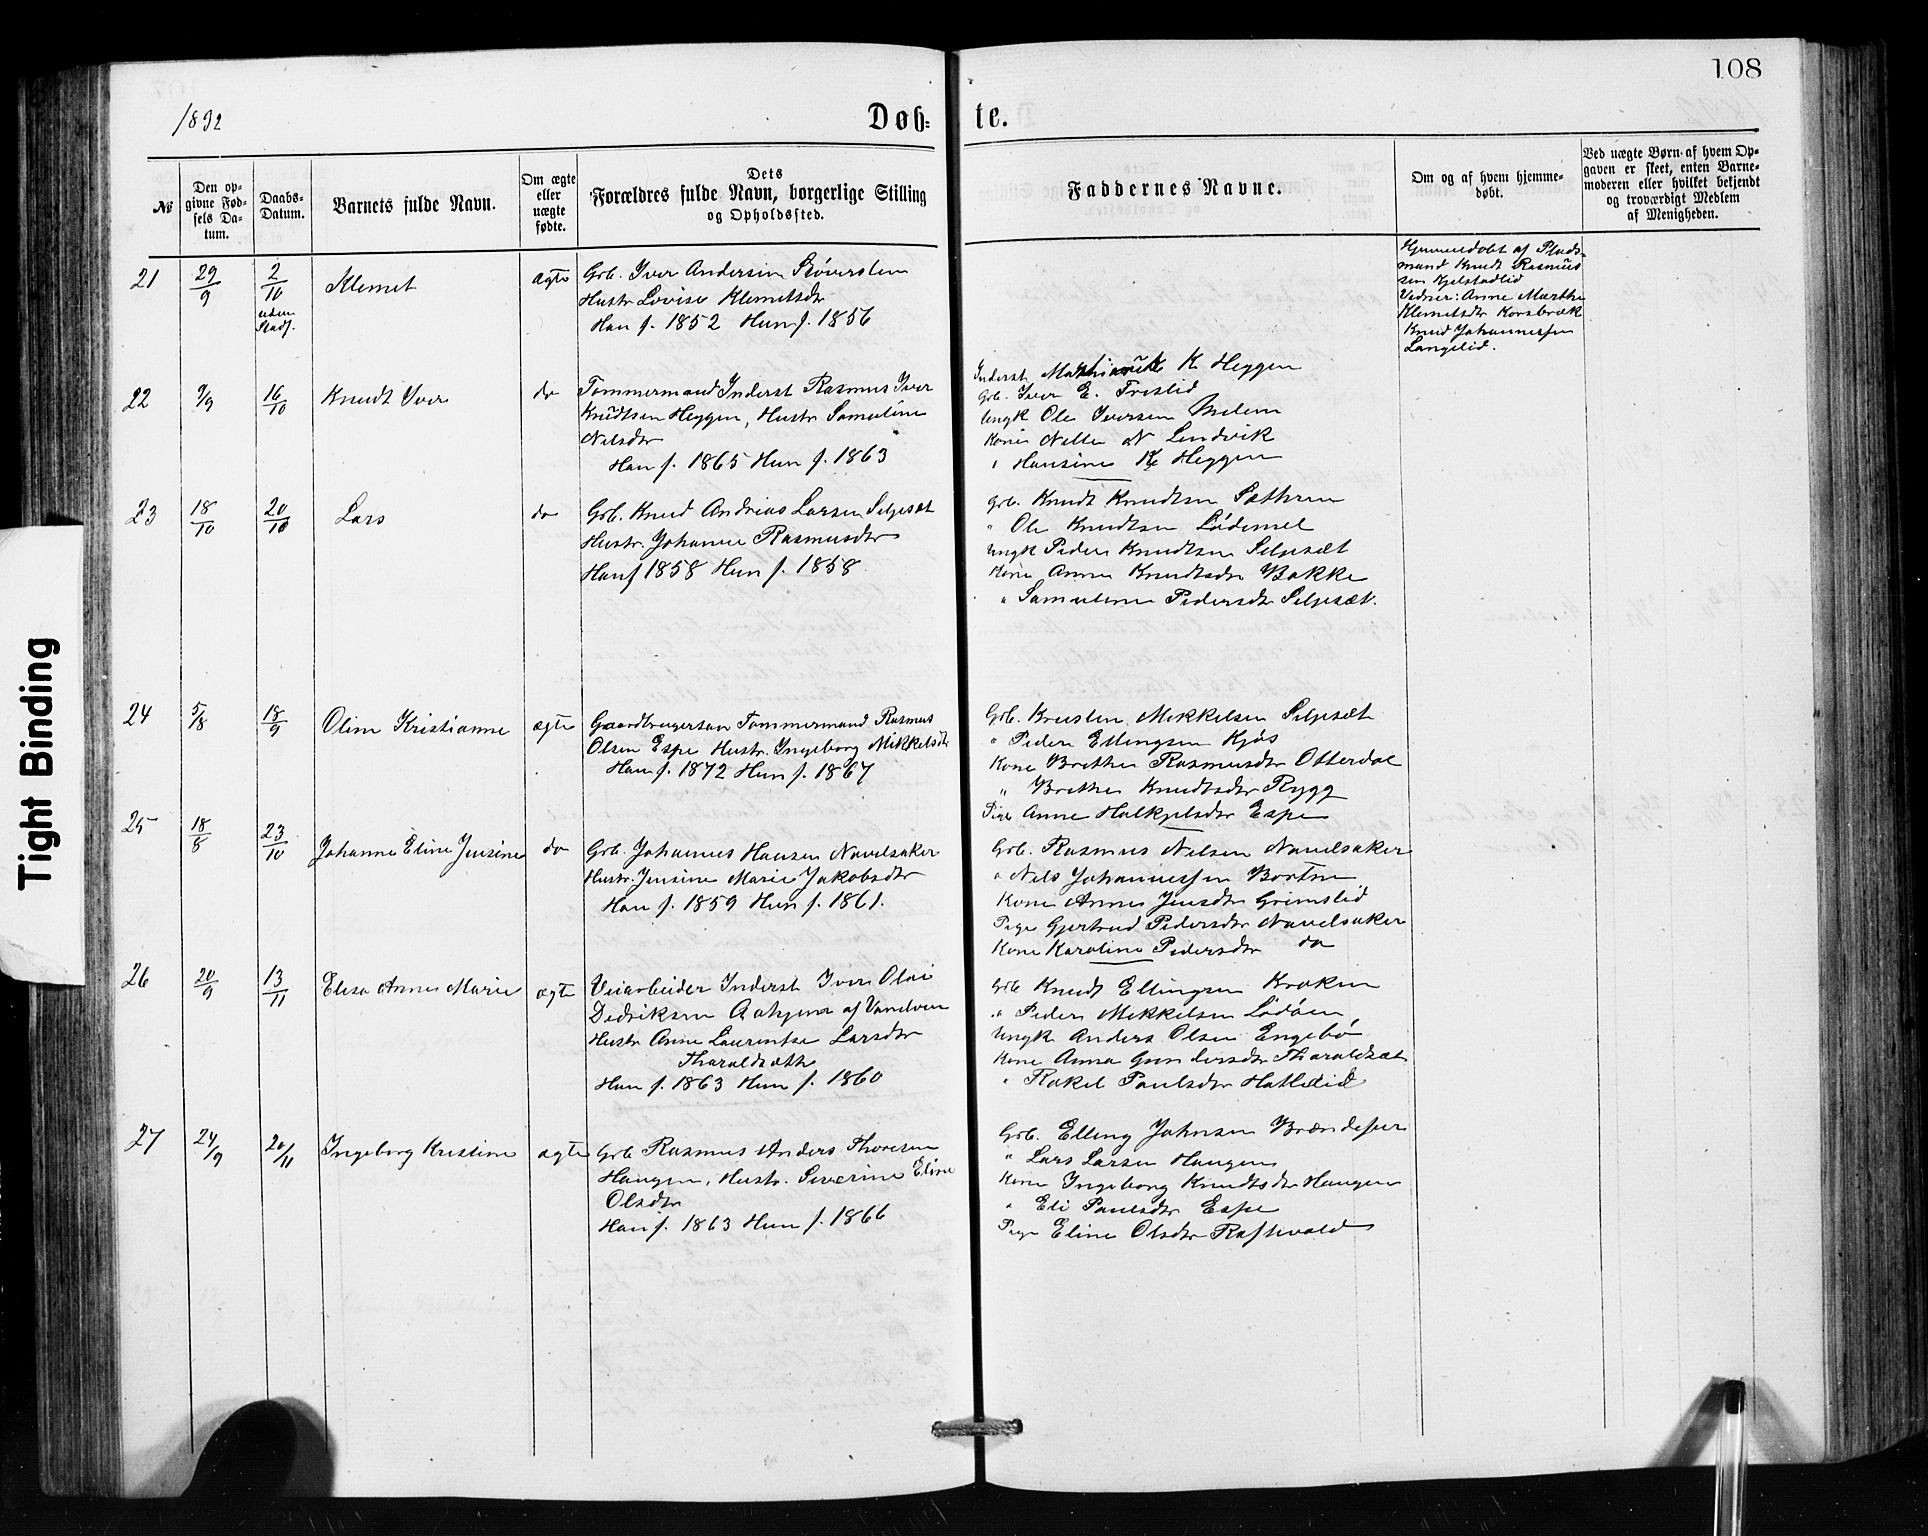 108
1892
Døb-
te.
No
Den op-
givne Fød-
sels Da-
tum.
Daabs-
Datum.
Barnets fulde Navn.
Om ægte
eller
uægte
fødte.
Dets
Forældres fulde Navn, borgerlige Stilling
og Opholdssted.
Faddernes Navne.
Om og af hvem hjemme-
døbt.
Ved uægte Børn af hvem Op-
gaven er skeet, enten Barne-
moderen eller hvilket bekjendt
og troværdigt Medlem
af Menigheden.
21
29/9
2/10
uden
Stadf.
Klemet
ægte
Grb. Iver Andersen
Hustr Lovise Klemetsdtr
Han f. 1852 Hun f. 1856
Hjemmedøbt af Plads-
mand Knudt Rasmus
sen Hjelstadlid
Vidner: Anne Marthe
Klemetsdtr Korsbræk
Knud Johannessen
Langelid.
22
9/9
16/10
Knudt Iver
do
Tømmermand Inderst Rasmus Iver
Knudtsen Heggen, Hustr Samuline
Nilsdtr
Han f. 1865 Hun f. 1863
Inderst K Heggen
Grb. Iver E.
Ungk Ole Iversen
Kone N
" Hansine K Heggen
23
18/10
20/10
Lars
do
Grb. Knud Andreas Larsen Seljesæt
Hustr. Johanne Rasmusdtr
Han f 1858 Hun f. 1858
Grb. Knudt Knudtsen Sæthren
" Ole Knudtsen Lødemel
Ungk Peder Knudtsen Seljesæt
Kone Anne Knudtsdtr Bakke
" Samuline Pedersdtr Seljesæt.
24
5/8
18/9
Oline Kristianne
ægte
Gaardbrugersøn Tømmermand Rasmus
Olsen Espe Hustr. Ingeborg Mikkelsdtr
Han f. 1872 Hun f. 1867
Grb. Kristen Mikkelsen Seljesæt
" Peder Ellingsen Kjøs
Kone Brethe Rasmusdtr Otterdal
" Brethe Knudtsdtr Rygg
Pige Anne Halkjelsdtr Espe
25
18/8
23/10
Johanne Eline Jensine
do
Grb. Johannes Hansen Navelsaker
Hustr. Jensine Marie Jakobsdtr
Han f. 1859 Hun f. 1861.
Grb. Rasmus Nilsen Navelsaker
" Nils Johannessen Bortne
Kone Anne Jensdtr Grimslid
Pige Gjertrud Pedersdtr Navelsaker
Kone Karoline Pedersdtr do
26
20/9
13/11
Elisa Anne Marie
ægte
Veiarbeider Inderst Iver Olai
Didriksen af Vandven
Hustr Anne Laurentse Larsdtr
Tharaldsæth
Han f. 1863 Hun f. 1860
Grb Knudt Ellingsen Kroken
" Peder Mikkelsen Lødøen
Ungk Anders Olsen Engebø
Kone Anna Gundersdtr Tharaldsæt
" Rakel Paulsdtr Hatledid
27
24/9
20/11
Ingeborg Kristine
ægte
Grb Rasmus Anders Thoresen
Haugen, Hustr. Severine Eline
Olsdtr
Han f. 1863 Hun f. 1866
Grb. Elling Johnsen
" Lars Larsen Haugen
Kone Ingeborg Knudtsdtr Haugen
" Eli Paulsdtr Espe
Pige Eline Olsdtr Raftevold
Tight Binding